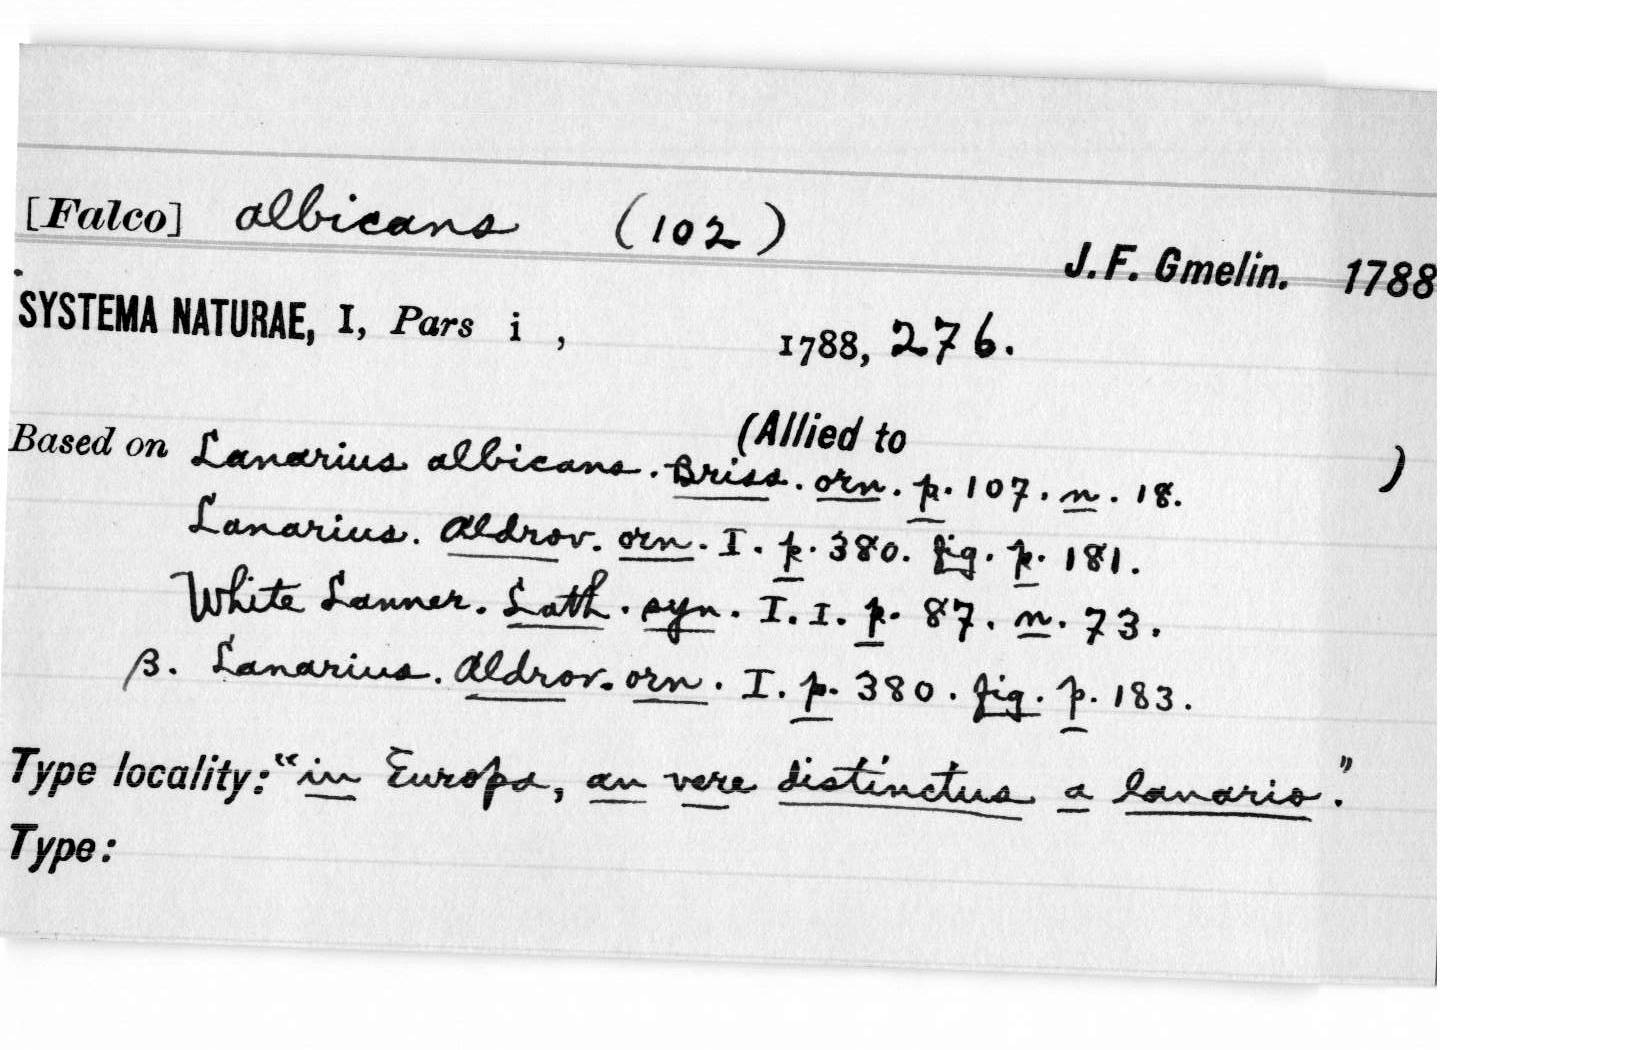 [Falco] albicans (102)
J. F. Gmelin. 1788
SYSTEMA NATURAE, I, Pars i , 1788, 276.
(Allied to )
Based on Lanarius albicans. Briss. orn. p. 107. n. 18.
Lanarius. Aldrov. orn. I. p. 380. fig. p. 181.
White Lanner. Lath. syn. I. I. p. 87. n. 73.
β. Lanarius. Aldrov. orn. I. p. 380. fig. p. 183.
Type locality: "in Europa, an vere distinctus a lanario."
Type: